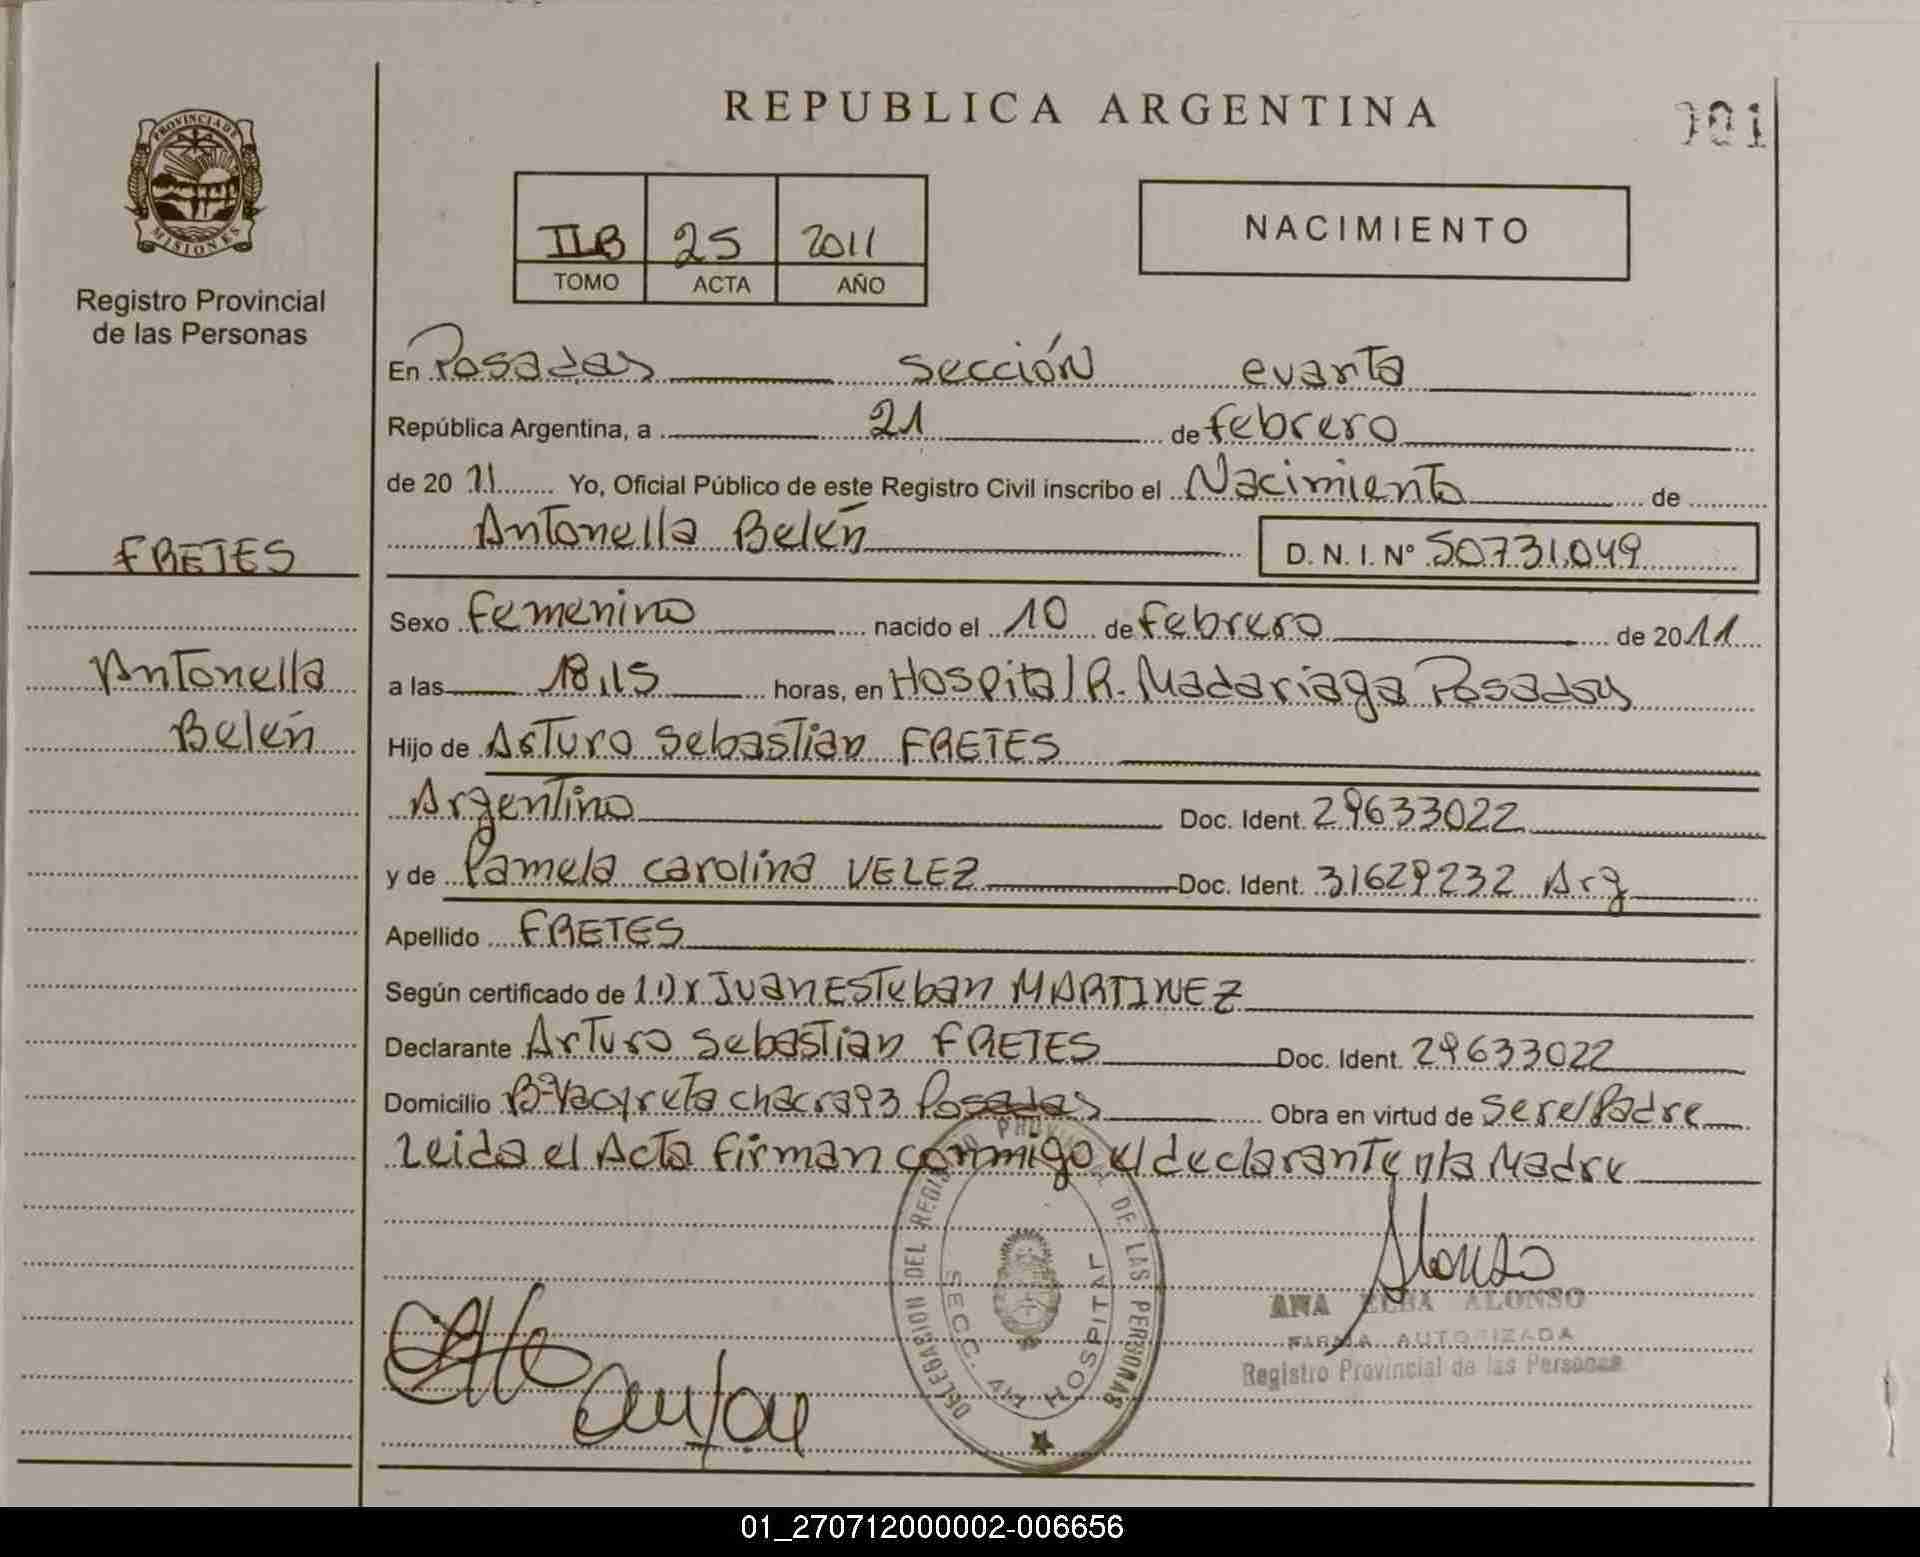 REPUBLICA ARGENTINA
101
PROVINCIA DE MISIONES
Registro Provincial
de las Personas
IIB 25 2011
TOMO ACTA AÑO
NACIMIENTO
En Posadas sección cuarta
República Argentina, a 21 de febrero
de 2011 Yo, Oficial Público de este Registro Civil inscribo el Nacimiento de
Antonella Belén D. N. I. N° 50731.049
FRETES
Antonella
Belén
Sexo femenino nacido el 10 de febrero de 2011
a las 18,15 horas, en Hospital R. Madariaga Posadas
Hijo de Arturo Sebastian FRETES
Argentino Doc. Ident. 29633022
y de Pamela Carolina VELEZ Doc. Ident. 31629232 Arg
Apellido FRETES
Según certificado de Dr Juan Esteban MARTINEZ
Declarante Arturo Sebastian FRETES Doc. Ident. 29633022
Domicilio Bº Yacyreta chacra 93 Posadas Obra en virtud de Ser el Padre
Leida el Acta firman conmigo el declarante y la Madre
DELEGACION DEL REGISTRO PROVINCIAL DE LAS PERSONAS
SECC. 4ta HOSPITAL
Alonso
ANA ELBA ALONSO
FIRMA AUTORIZADA
Registro Provincial de las Personas
01_270712000002-006656